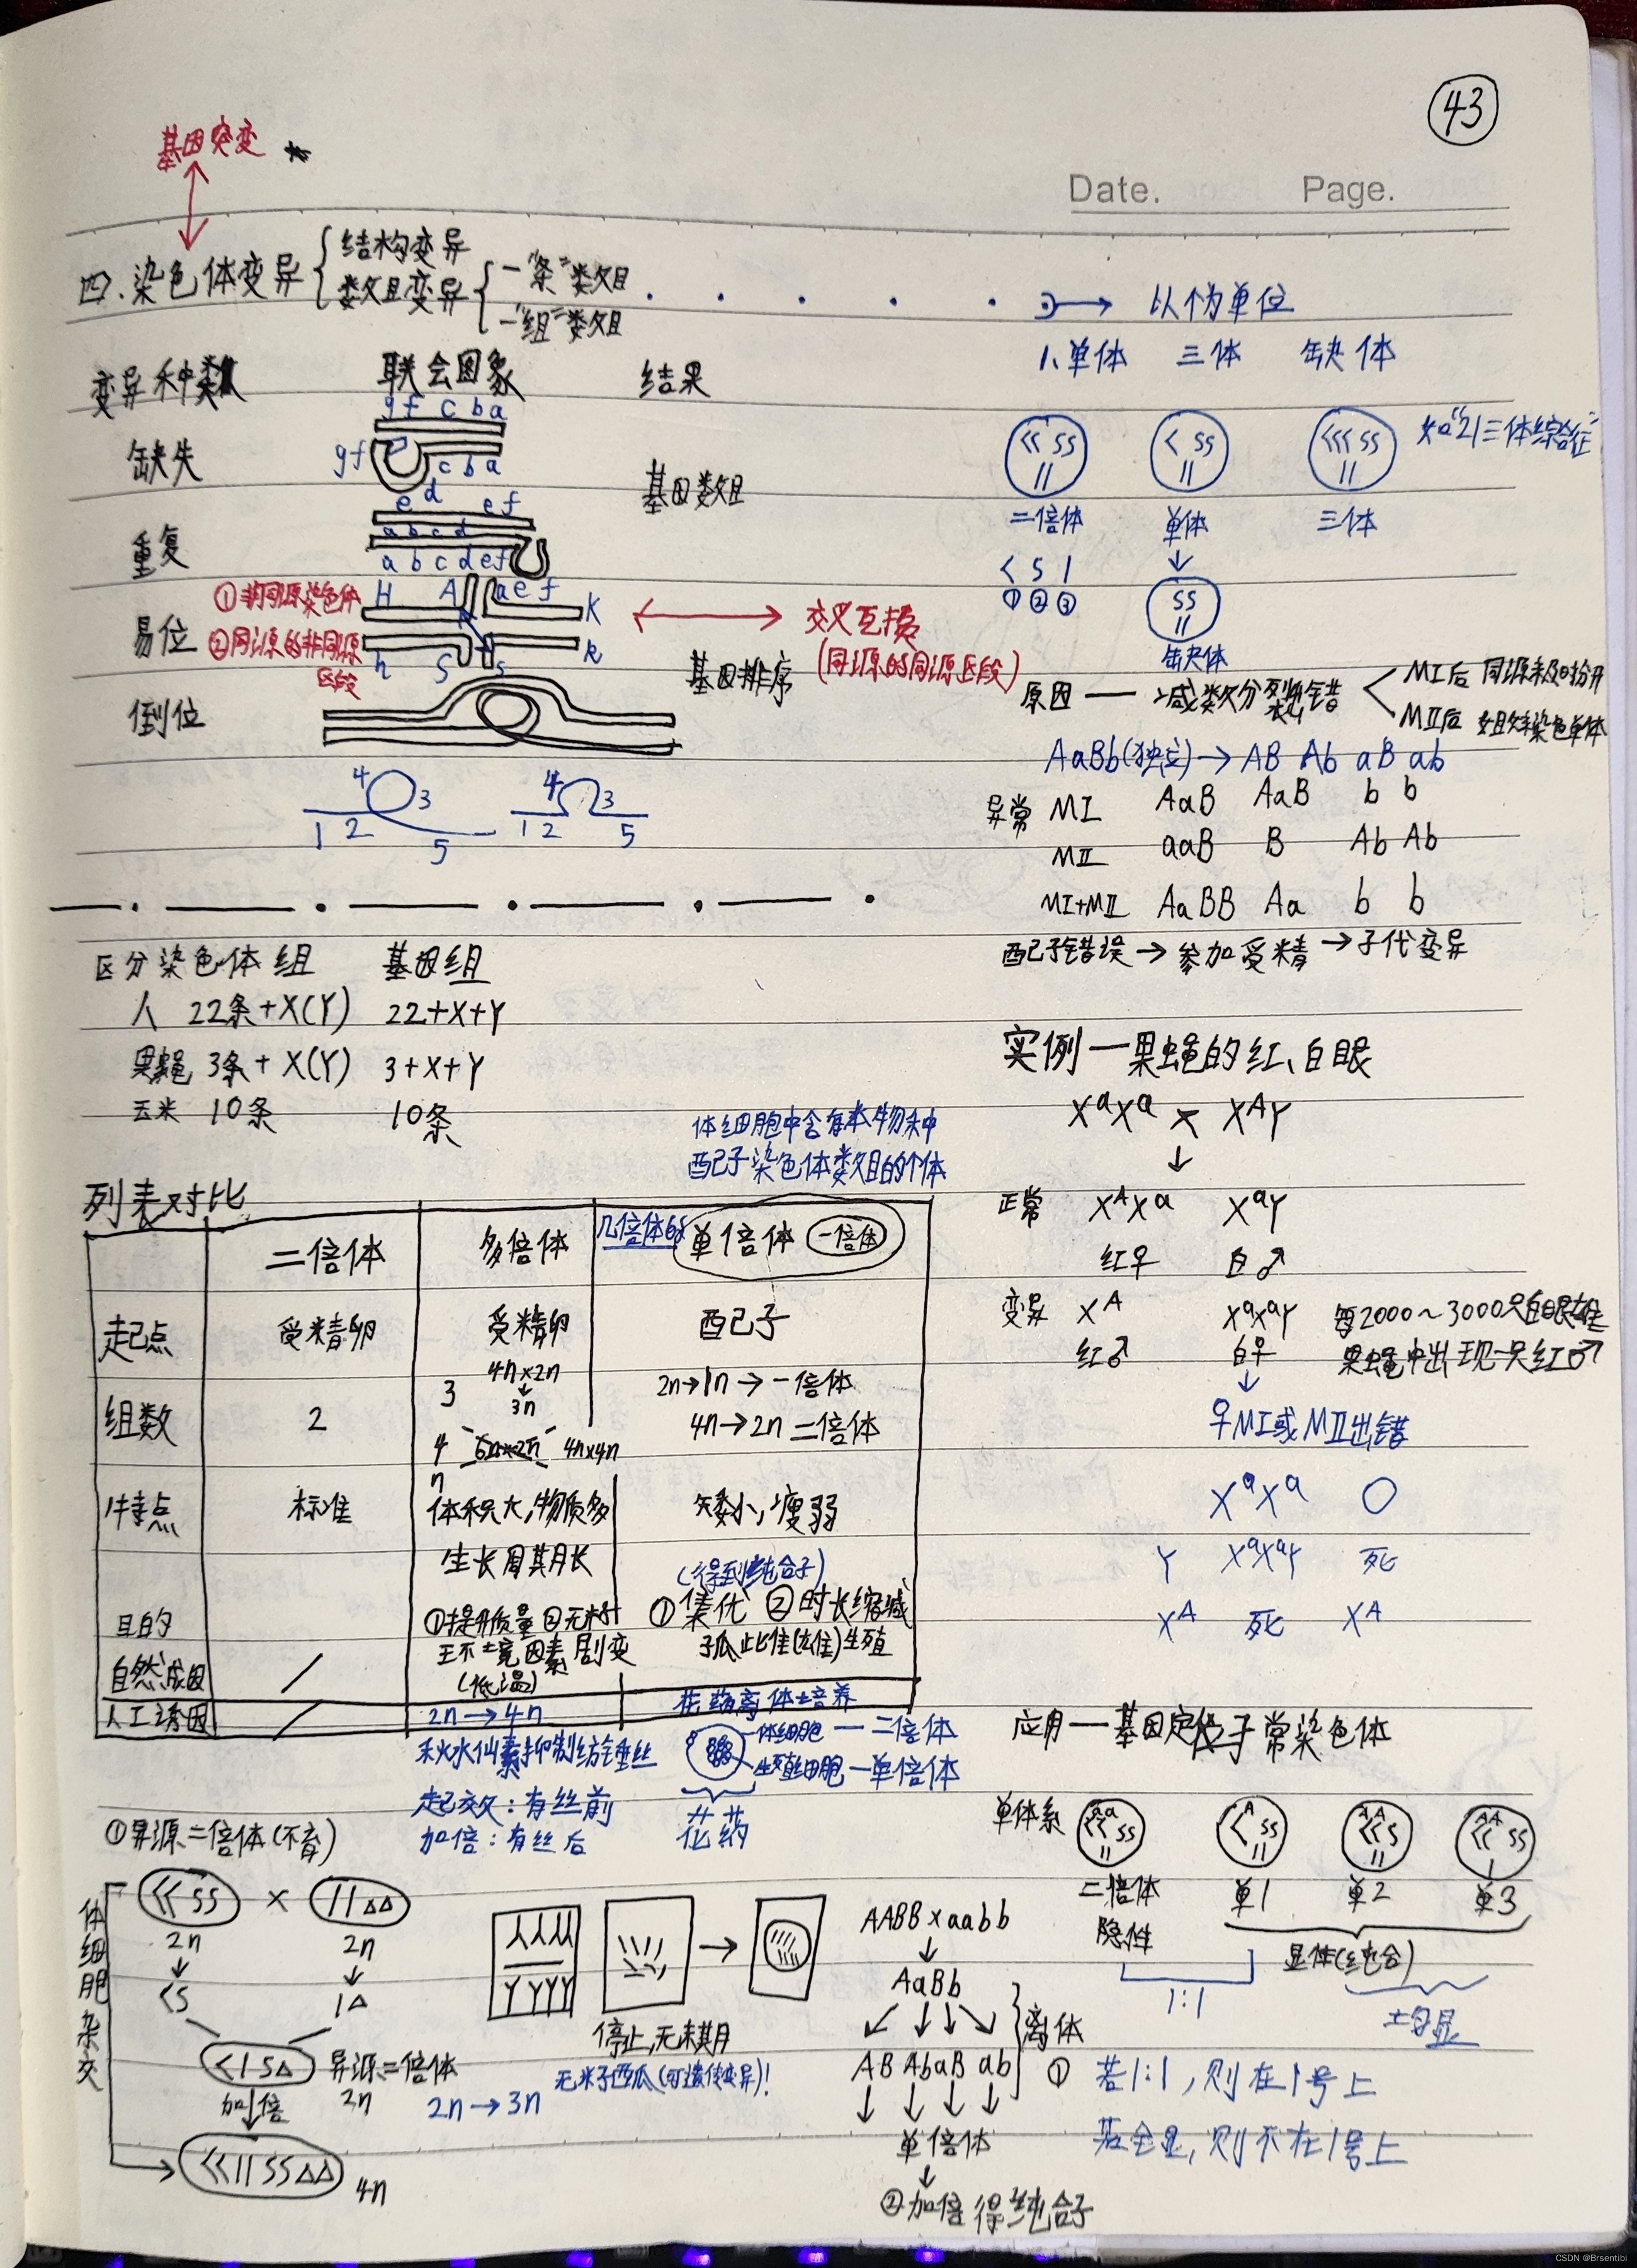 43
Date. Page.
基因突变
四.染色体变异
结构变异
数目变异
一"条"类数目
一"组"类数目
以个为单位
1.单体 三体 缺体
变异种数 联会图象 结果
缺失
gf c b a
gf e c b a
d
基因数目
重复
e f
a b c d
a b c d e f
二倍体 单体 三体
如"21三体综合征"
① ② ③
缺体
①非同源染色体
②同源的非同源区段
易位
H A a e f K
h S s k
交叉互换
(同源的同源区段)
倒位
基因排序
4 3
1 2 5
4 3
1 2 5
原因 — 减数分裂出错
MⅠ后 同源未及时拉开
MⅡ后 姐妹染色单体
AaBb(独立)→ AB Ab aB ab
异常 MⅠ AaB AaB b b
MⅡ aaB B Ab Ab
MⅠ+MⅡ AaBB Aa b b
配子错误→参加受精→子代变异
区分染色体组 基因组
人 22条+X(Y) 22+X+Y
果蝇 3条+X(Y) 3+X+Y
玉米 10条 10条
实例一果蝇的红、白眼
XᵃXᵃ × XᴬY
正常 XᴬXᵃ XᵃY
红♀ 白♂
变异 Xᴬ XᵃXᵃY
红♂ 白♀
每2000~3000只白眼雄
果蝇中出现一只红♂
♀MⅠ或MⅡ出错
XᵃXᵃ O
Y XᵃXᵃY 死
Xᴬ 死 Xᴬ
体细胞中含有本物种
配子染色体数目的个体
列表对比
二倍体 多倍体 几倍体的 单倍体 一倍体
起点 受精卵 受精卵 配子
组数 2
3 4n×2n
3n
4 6n×2n 4n×4n
n
2n→1n→一倍体
4n→2n 二倍体
特点 标准
体积大,物质多
生长周期长
矮小,瘦弱
(得到纯合子)
目的
①提升质量②无籽
①集优 ②时长缩减
自然成因 /
环境因素剧变
(低温)
孤雌(雄)生殖
人工诱因 /
2n→4n
秋水仙素抑制纺锤丝
起效:有丝前
加倍:有丝后
花药离体培养
体细胞—二倍体
生殖细胞—单倍体
花药
应用一基因定位于常染色体
单体系
A A A A A
二倍体 单1 单2 单3
隐性 显体(纯合)
1:1 均显
① 若1:1,则在1号上
若全显,则不在1号上
①异源二倍体(不育)
体细胞杂交
×
2n 2n
异源二倍体
2n
加倍
4n
停止,无末期
无籽西瓜(可遗传变异)!
2n→3n
AABB×aabb
AaBb
AB Ab aB ab
离体
单倍体
②加倍得纯合子
CSDN @Brsentibi